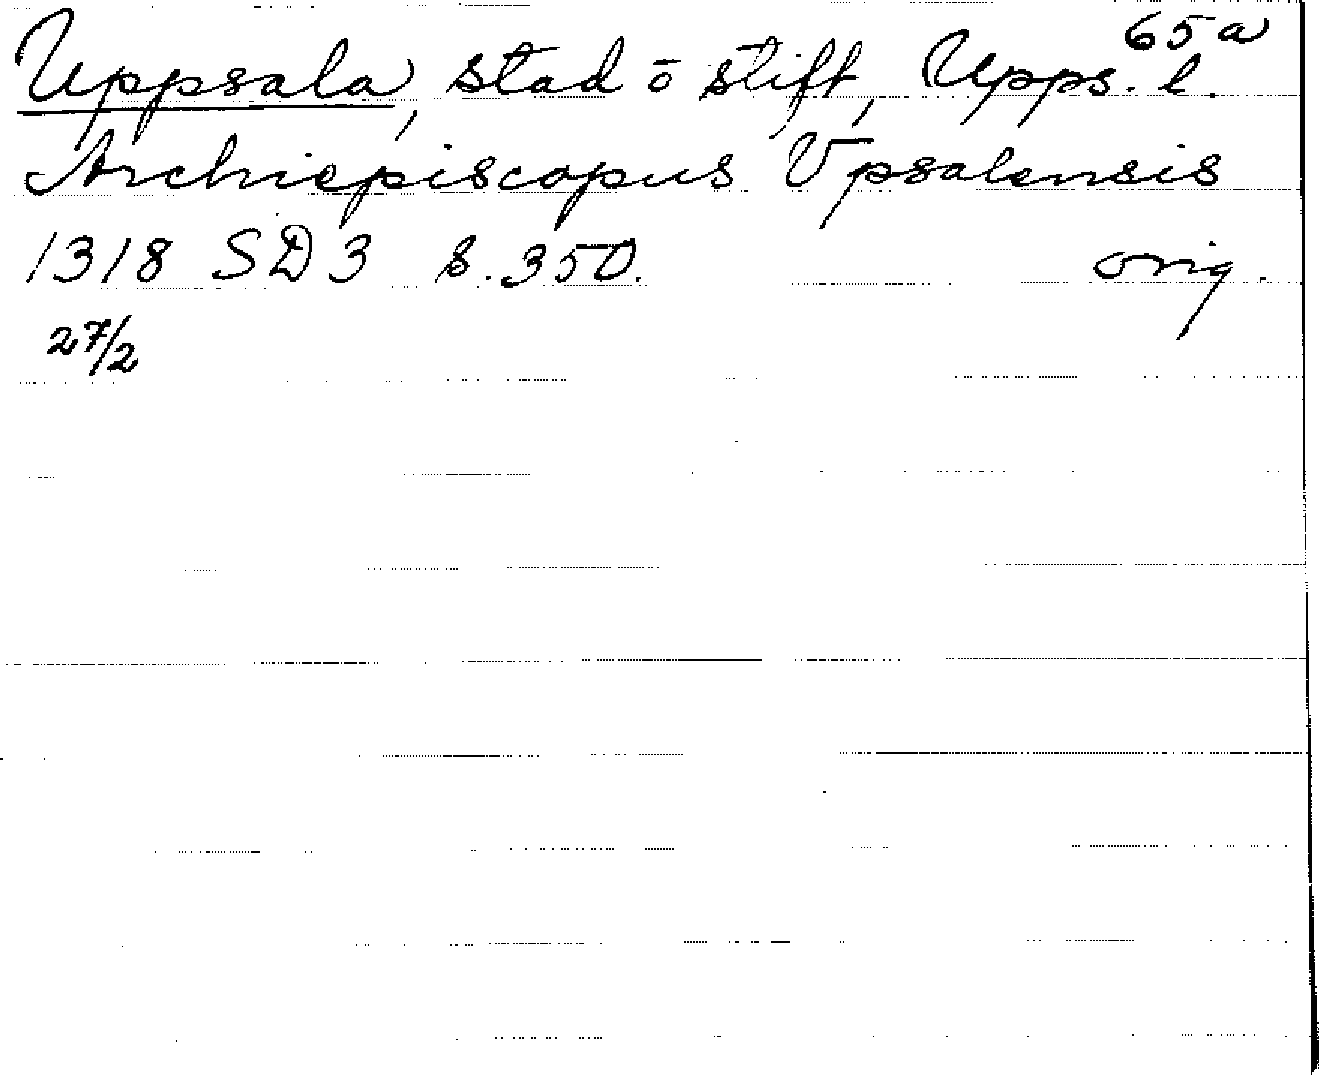 65a
Uppsala, stad ō stift, Upps. l.
Archiepiscopus Vpsalensis
1318 SD 3 s. 350. orig.
27/2